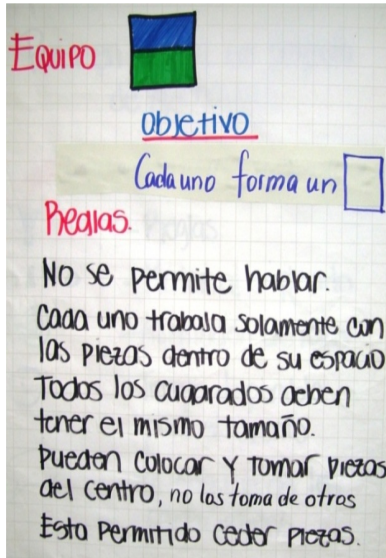 EQUIPO
Objetivo
Cada uno forma un
Reglas.
No se permite hablar.
Cada uno trabaja solamente con
las piezas dentro de su espacio
Todos los cuadrados deben
tener el mismo tamaño.
pueden colocar y tomar piezas
del centro, no las toma de otros
Esta permitido ceder piezas.